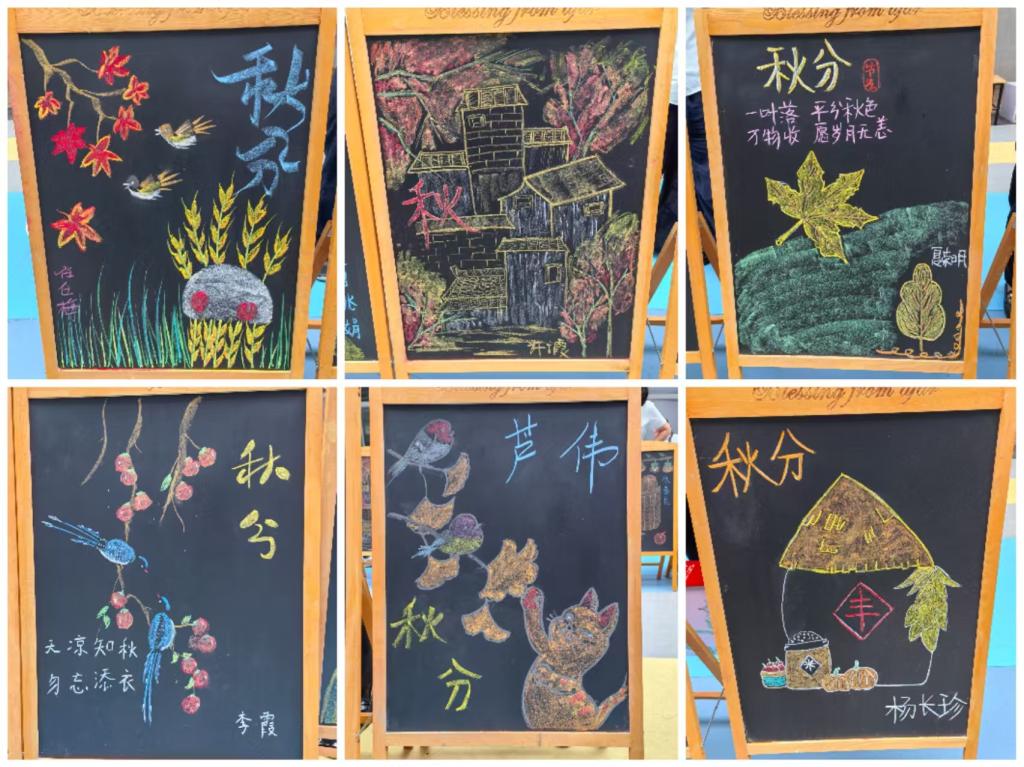 秋分
Blessing from afar
秋
许霞
Blessing from afar
秋分
一叶落 平分秋色
万物收 愿岁月无恙
秋分
天凉知秋
勿忘添衣
李霞
芦伟
秋分
Blessing from afar
秋分
丰
米
杨长珍